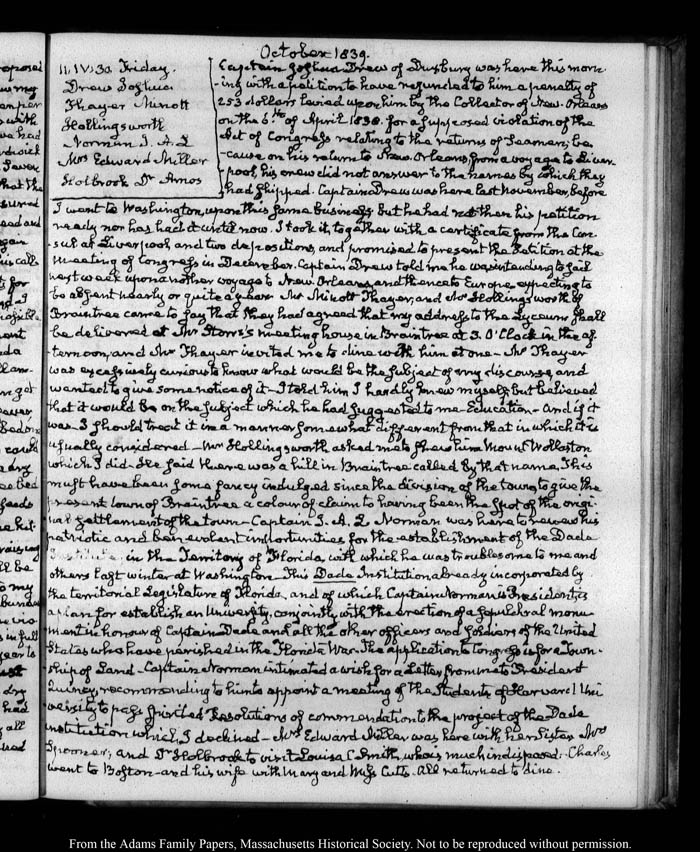 October 1839.
11. IV:30. Friday.
Drew Joshua
Thayer Minott
Hollingsworth
Norman J. A. L
Mrs Edward Miller
Holbrook Dr Amos
Captain Joshua Drew of Duxbury was here this morn-
-ing with a petition to have refunded to him a penalty of
253 dollars levied upon him by the Collector of New-Orleans
on the 6th of April 1838. for a supposed violation of the
Act of Congress relating to the returns of Seamen; be-
-cause on his return to New Orleans from a voyage to Liver-
-pool, his crew did not answer to the names by which they
had shipped. Captain Drew was here last November, before
I went to Washington, upon this same business but he had not then his petition
ready nor has had it until now. I took it, together with a certificate from the Con-
sul at Liverpool, and two depositions, and promised to present the Petition at the
meeting of Congress in December. Captain Drew told me he was intending to sail
next week upon another voyage to New Orleans, and thence to Europe, expecting to
be absent nearly or quite a year. Mr Minott Thayer, and Mr Hollingsworth of
Braintree came to say that they had agreed that my address to the Lyceum shall
be delivered at Mr Storrs's meeting house in Braintree at 3. O'Clock in the af-
ternoon, and Mr Thayer invited me to dine with him at one- Mr Thayer
was excessively curious to know what would be the subject of my discourse, and
wanted to give some notice of it- I told him I hardly knew myself, but believed
that it would be on the subject which he had suggested to me- Education- and if it
was. I should treat it in a manner somewhat different from that in which it is
usually considered- Mr Hollingsworth asked me to shew him Mount Wollaston
which I did- He said there was a hill in Braintree called by that name. This
must have been some fancy indulged since the division of the town, to give the
present town of Braintree a colour of claim to having been the spot of the origi-
nal settlement of the town- Captain J. A. L Norman was here to renew his
patriotic and benevolent importunities for the establishment of the Dade
Institute in the Territory of Florida, with which he was troublesome to me and
others last winter at Washington- This Dade Institution already incorporated by
the territorial Legislature of Florida, and of which Captain Norman is President, is
a plan for establish an University, conjointly with the erection of a sepulchral monu-
ment in honour of Captain Dade and all the other officers and soldiers of the United
States who have perished in the Florida War. The application to Congress is for a Town-
ship of Land- Captain Norman intimated a wish for a Letter from me to President
Quincy recommending to him to appoint a meeting of the Students of Harvard Uni
versity to pass spirited Resolutions of commendation to the project of the Dade
institution which I declined- Mrs Edward Miller was here with her Sister Mrs
Spooner; and Dr Holbrook to visit Louisa C. Smith who is much indisposed. Charles
went to Boston- and his wife with Mary and Miss Cutts. All returned to dine.
From the Adams Family Papers, Massachusetts Historical Society. Not to be reproduced without permission.